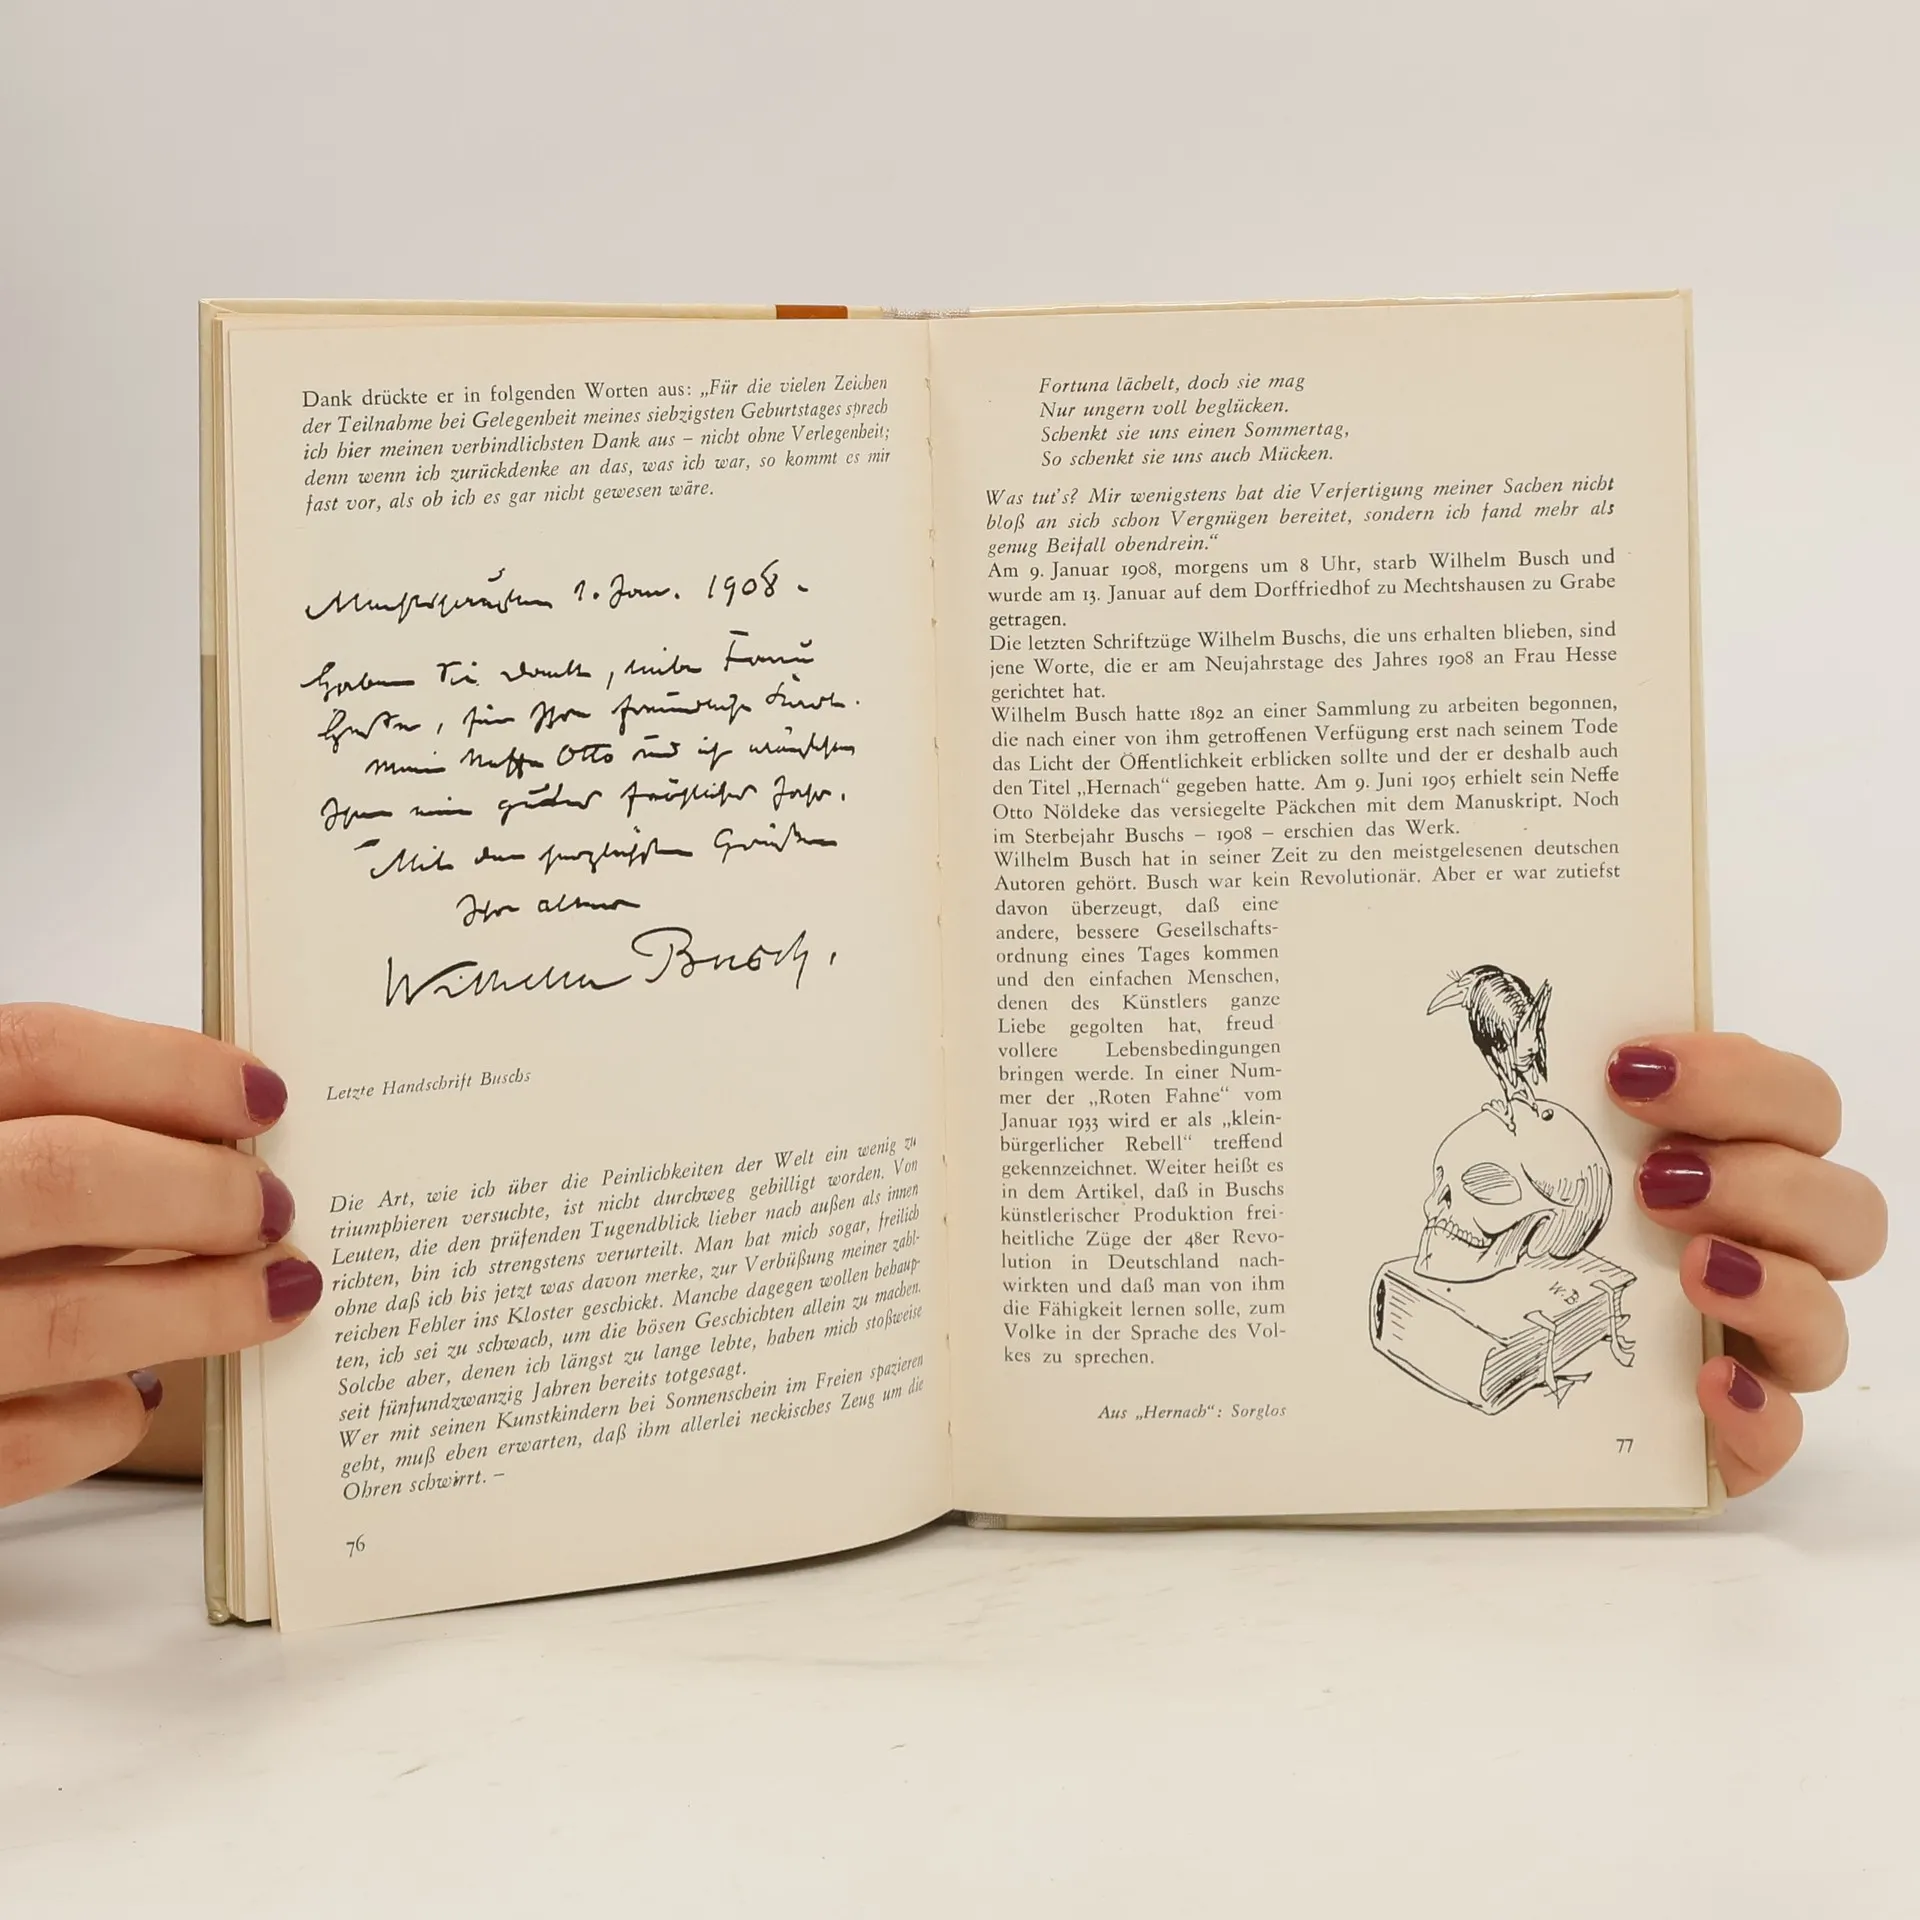 Dank drückte er in folgenden Worten aus: „Für die vielen Zeichen
der Teilnahme bei Gelegenheit meines siebzigsten Geburtstages sprech
ich hier meinen verbindlichsten Dank aus – nicht ohne Verlegenheit;
denn wenn ich zurückdenke an das, was ich war, so kommt es mir
fast vor, als ob ich es gar nicht gewesen wäre.
Mechtshausen 1. Jan. 1908.
Haben Sie Dank, liebe Frau
Hesse, für Ihre freundliche Karte.
Mein Neffe Otto und ich wünschen
Ihnen ein gutes fröhliches Jahr.
Mit den herzlichsten Grüßen
Ihr alter
Wilhelm Busch.
Letzte Handschrift Buschs
Die Art, wie ich über die Peinlichkeiten der Welt ein wenig zu
triumphieren versuchte, ist nicht durchweg gebilligt worden. Von
Leuten, die den prüfenden Tugendblick lieber nach außen als innen
richten, bin ich strengstens verurteilt. Man hat mich sogar, freilich
ohne daß ich bis jetzt was davon merke, zur Verbüßung meiner zahl-
reichen Fehler ins Kloster geschickt. Manche dagegen wollen behaup-
ten, ich sei zu schwach, um die bösen Geschichten allein zu machen.
Solche aber, denen ich längst zu lange lebte, haben mich stoßweise
seit fünfundzwanzig Jahren bereits totgesagt.
Wer mit seinen Kunstkindern bei Sonnenschein im Freien spazieren
geht, muß eben erwarten, daß ihm allerlei neckisches Zeug um die
Ohren schwirrt. –
76
Fortuna lächelt, doch sie mag
Nur ungern voll beglücken.
Schenkt sie uns einen Sommertag,
So schenkt sie uns auch Mücken.
Was tut's? Mir wenigstens hat die Verfertigung meiner Sachen nicht
bloß an sich schon Vergnügen bereitet, sondern ich fand mehr als
genug Beifall obendrein.“
Am 9. Januar 1908, morgens um 8 Uhr, starb Wilhelm Busch und
wurde am 13. Januar auf dem Dorffriedhof zu Mechtshausen zu Grabe
getragen.
Die letzten Schriftzüge Wilhelm Buschs, die uns erhalten blieben, sind
jene Worte, die er am Neujahrstage des Jahres 1908 an Frau Hesse
gerichtet hat.
Wilhelm Busch hatte 1892 an einer Sammlung zu arbeiten begonnen,
die nach einer von ihm getroffenen Verfügung erst nach seinem Tode
das Licht der Öffentlichkeit erblicken sollte und der er deshalb auch
den Titel „Hernach“ gegeben hatte. Am 9. Juni 1905 erhielt sein Neffe
Otto Nöldeke das versiegelte Päckchen mit dem Manuskript. Noch
im Sterbejahr Buschs – 1908 – erschien das Werk.
Wilhelm Busch hat in seiner Zeit zu den meistgelesenen deutschen
Autoren gehört. Busch war kein Revolutionär. Aber er war zutiefst
davon überzeugt, daß eine
andere, bessere Gesellschafts-
ordnung eines Tages kommen
und den einfachen Menschen,
denen des Künstlers ganze
Liebe gegolten hat, freud
vollere Lebensbedingungen
bringen werde. In einer Num-
mer der „Roten Fahne“ vom
Januar 1933 wird er als „klein-
bürgerlicher Rebell“ treffend
gekennzeichnet. Weiter heißt es
in dem Artikel, daß in Buschs
künstlerischer Produktion frei-
heitliche Züge der 48er Revo-
lution in Deutschland nach-
wirkten und daß man von ihm
die Fähigkeit lernen solle, zum
Volke in der Sprache des Vol-
kes zu sprechen.
W.B
Aus „Hernach“: Sorglos
77